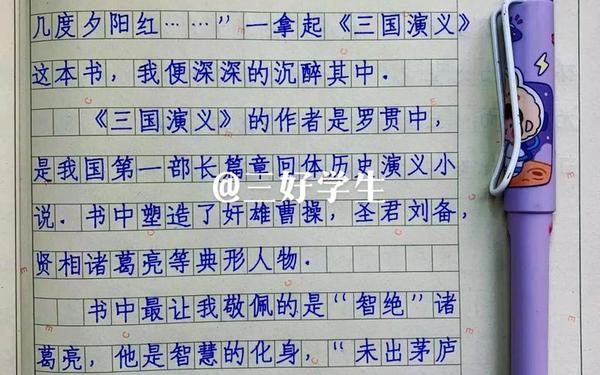 几度夕阳红……”一拿起《三国演义》
这本书，我便深深的沉醉其中．
《三国演义》的作者是罗贯中，
是我国第一部长篇章回体历史演义小
@三好学生
说．书中塑造了奸雄曹操，圣君刘备，
贤相诸葛亮等典形人物．
书中最让我敬佩的是“智绝”诸
葛亮，他是智慧的化身，“未出茅庐